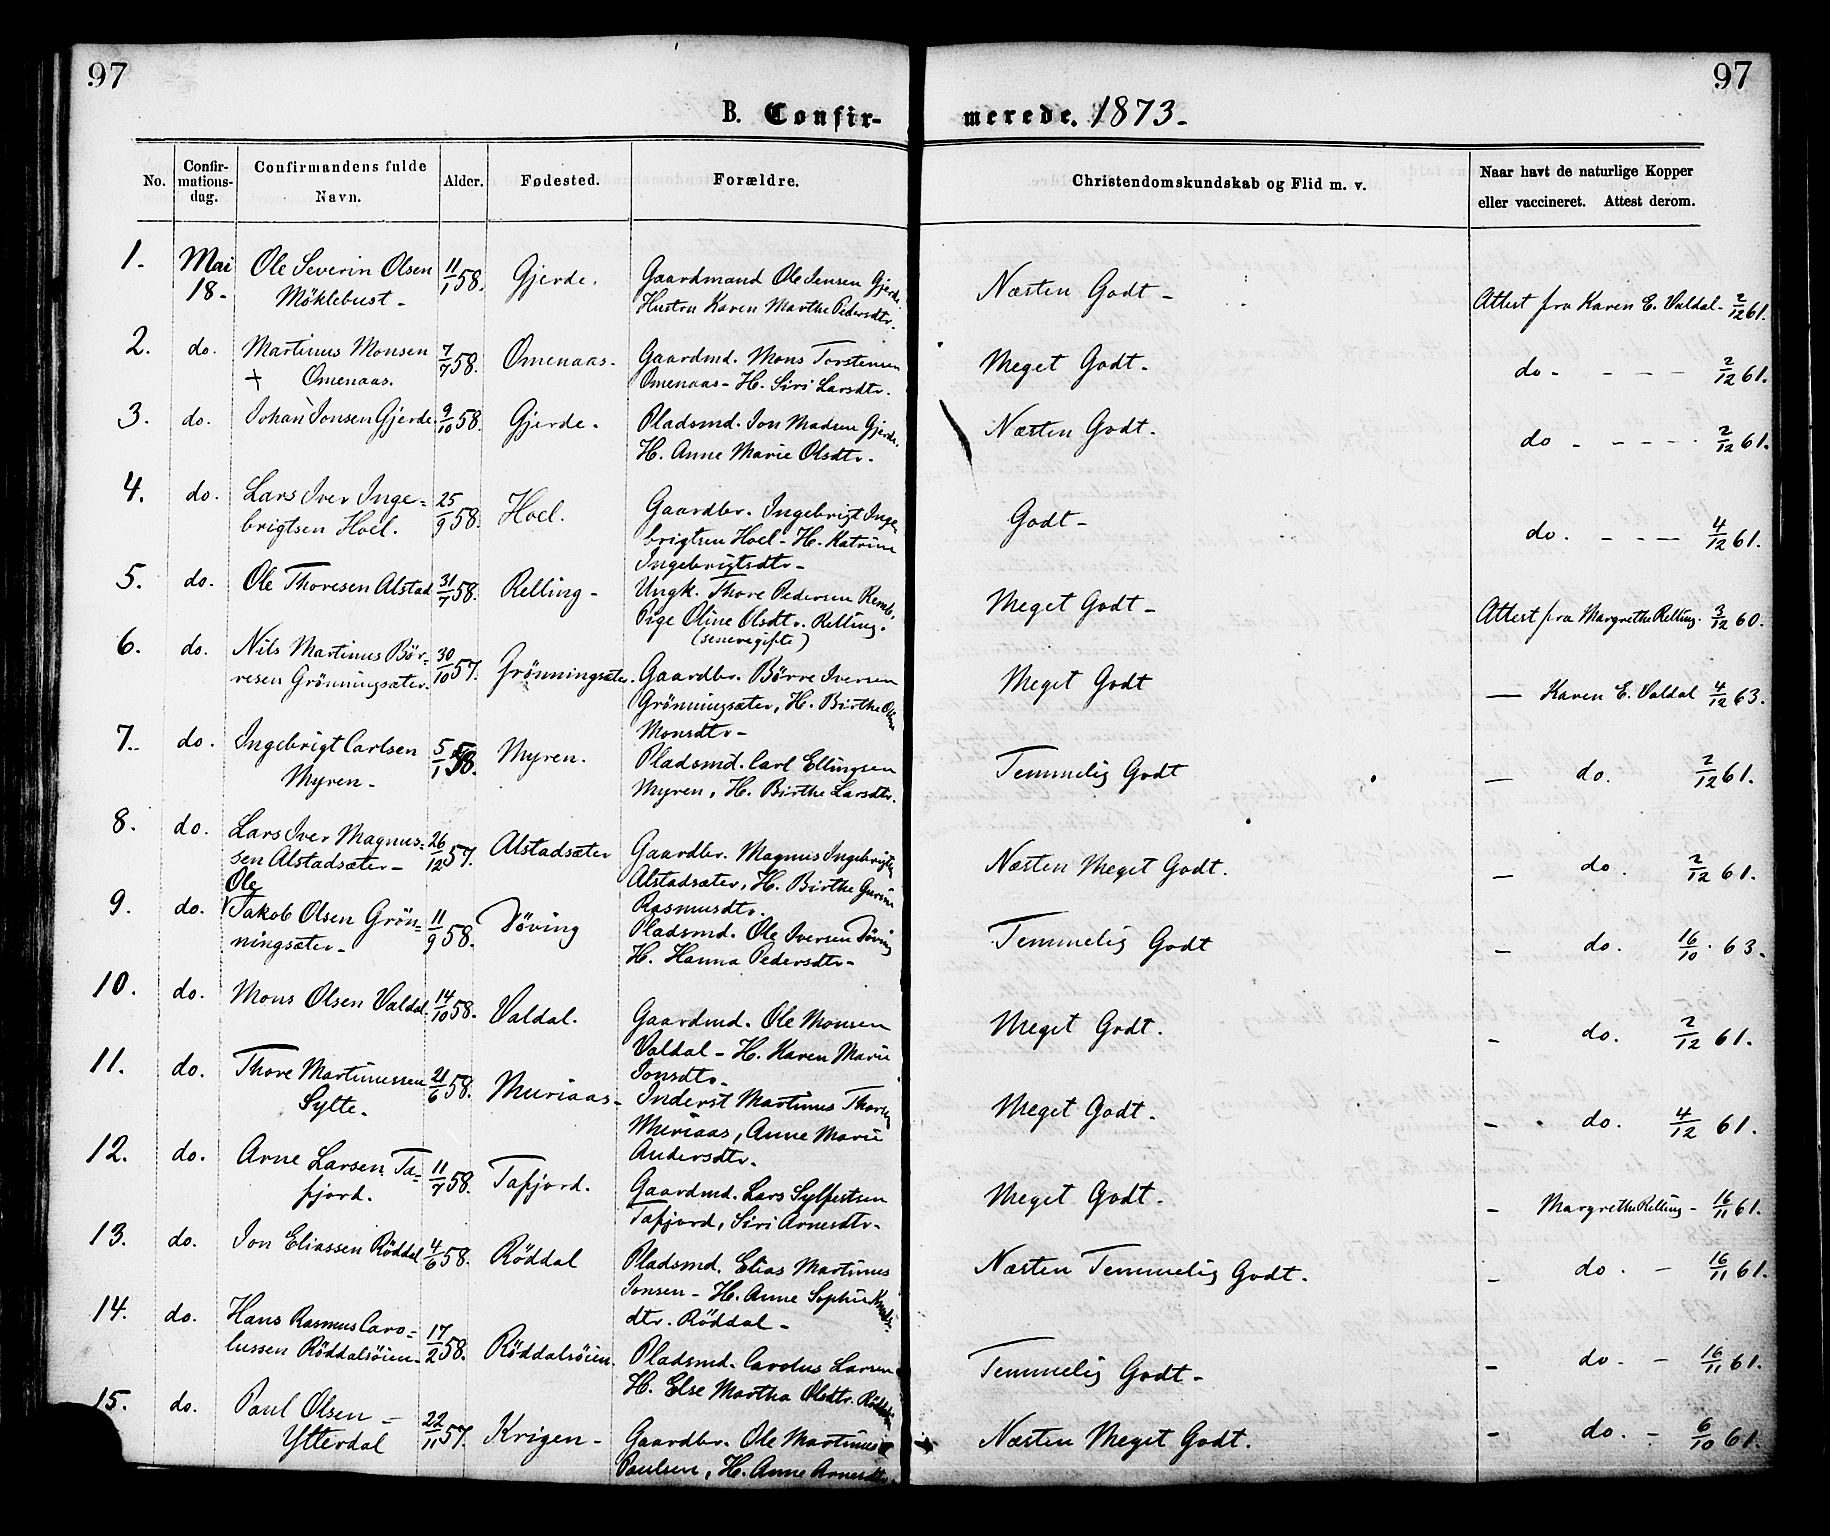 97
97
B. Confir-
merede. 1873.-
No.
Confir-
mations-
dag.
Confirmandens fulde
Navn.
Alder.
Fødested.
Forældre.
Christendomskundskab og Flid m. v.
Naar havt de naturlige Kopper
eller vaccineret. Attest derom.
1. Mai 18. Ole Severin Olsen 11/1 58. Gjerde. Gaardmand Ole Jensen Gjerde Næsten Godt - Attest fra Karen E. Valdal - 2/12 61.
Möklebust - Hustru Karen Marthe Pedersdtr.
2. do. Martinus Monsen 7/7 58. Omenaas. Gaardmd. Mons Torstensen Meget Godt - do - - - - 2/12 61.
+ Omenaas. Omenaas - H. Siri Larsdtr.
3. do. Johan Jonsen Gjerde 9/10 58. Gjerde. Pladsmd. Jon Madsen Gjerde, Næsten Godt. do - - - - 2/12 61.
H. Anne Marie Olsdtr.
4. do. Lars Iver Inge- 25/9 58. Hoel. Gaardbr. Ingebrigt Inge- Godt - do. - - - 4/12 61.
brigtsen Hoel. brigtsen Hoel - H. Katrine
Ingebrigtsdtr -
5. do. Ole Thoresen Alstad 31/7 58. Relling - Ungk. Thore Pedersen Meget Godt - Attest fra Margrethe Relling. 3/12 60.
Pige Oline Olsdtr. Relling.
(senere gifte)
6. do. Nils Martinus Bör- 30/10 57. Grönningsæter. Gaardbr. Börre Iversen Meget Godt - Karen E. Valdal 4/12 63.
resen Grönningsæter. Grönningsæter, H. Birthe
Monsdtr -
7. do. Ingebrigt Carlsen 5/1 58. Myren. Pladsmd. Carl Ellingsen Temmelig Godt - do. 2/12 61.
Myren - Myren, H. Birthe Larsdtr.
8. do. Lars Iver Magnus- 26/12 57. Alstadsæter Gaardbr. Magnus Ingebrigts Næsten Meget Godt. - do. 2/12 61.
sen Alstadsæter - Alstadsæter, H. Birthe Gurine
Rasmusdtr.
Ole
9. do. Jakob Olsen Grön- 11/9 58. Döving Pladsmd. Ole Iversen Döving Temmelig Godt - do. 16/10 63.
ningsæter - H. Hanna Pedersdtr -
10. do. Mons Olsen Valdal. 14/10 58. Valdal. Gaardmd. Ole Monsen Meget Godt. - do. 2/12 61.
Valdal - H. Karen Marie
Jonsdtr.
11. do. Thore Martinussen 21/6 58. Muriaas - Inderst Martinus Thores Meget Godt. - do. 4/12 61.
Sylte. Muriaas, Anne Marie
Andersdtr.
12. do. Arne Larsen Ta- 11/7 58. Tafjord. Gaardmd. Lars Sylfestsen Meget Godt. - Margrethe Relling - 16/11 61.
fjord. Tafjord, Siri Arnesdtr.
13. do. Jon Eliassen Röddal 4/6 58. Röddal Pladsmd. Elias Martinus Næsten Temmelig Godt. - do. - 16/11 61.
Jonsen - H. Anne Sophie Knuds-
dtr. Röddal -
14. do. Hans Rasmus Caro- 17/2 58. Röddalsöien. Pladsmd. Carolus Larsen Temmelig Godt - - do. - 16/11 61.
lussen Röddalsöien. H. Else Martha Olsdtr.
15. do. Paul Olsen - 22/11 57. Krigen - Gaardbr. Ole Martinus Næsten Meget Godt. - do. - 6/10 61.
Ytterdal Paulsen, H. Anne Arnesdtr.